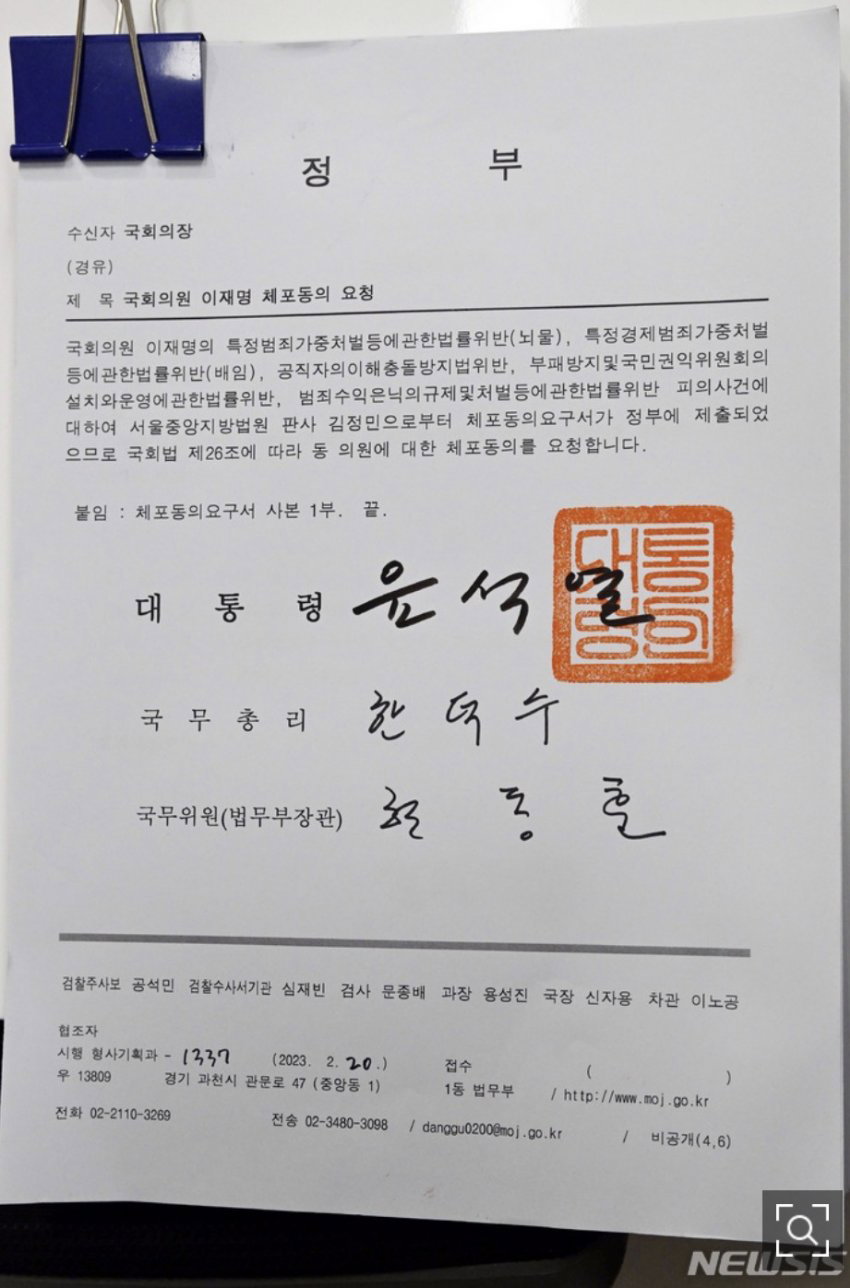 정 부
수신자 국회의장
(경유)
제 목 국회의원 이재명 체포동의 요청
국회의원 이재명의 특정범죄가중처벌등에관한법률위반(뇌물), 특정경제범죄가중처벌
등에관한법률위반(배임), 공직자의이해충돌방지법위반, 부패방지및국민권익위원회의
설치와운영에관한법률위반, 범죄수익은닉의규제및처벌등에관한법률위반 피의사건에
대하여 서울중앙지방법원 판사 김정민으로부터 체포동의요구서가 정부에 제출되었
으므로 국회법 제26조에 따라 동 의원에 대한 체포동의를 요청합니다.
붙임 : 체포동의요구서 사본 1부. 끝.
대 통 령 윤석열
대통령의인
국 무 총 리 한덕수
국무위원(법무부장관) 한동훈
검찰주사보 공석민 검찰수사서기관 심재빈 검사 문종배 과장 용성진 국장 신자용 차관 이노공
협조자
시행 형사기획과 - 1337 (2023. 2. 20.) 접수 ( )
우 13809 경기 과천시 관문로 47 (중앙동 1) 1동 법무부 / http://www.moj.go.kr
전화 02-2110-3269 전송 02-3480-3098 / danggu0200@moj.go.kr / 비공개(4,6)
NEWSIS